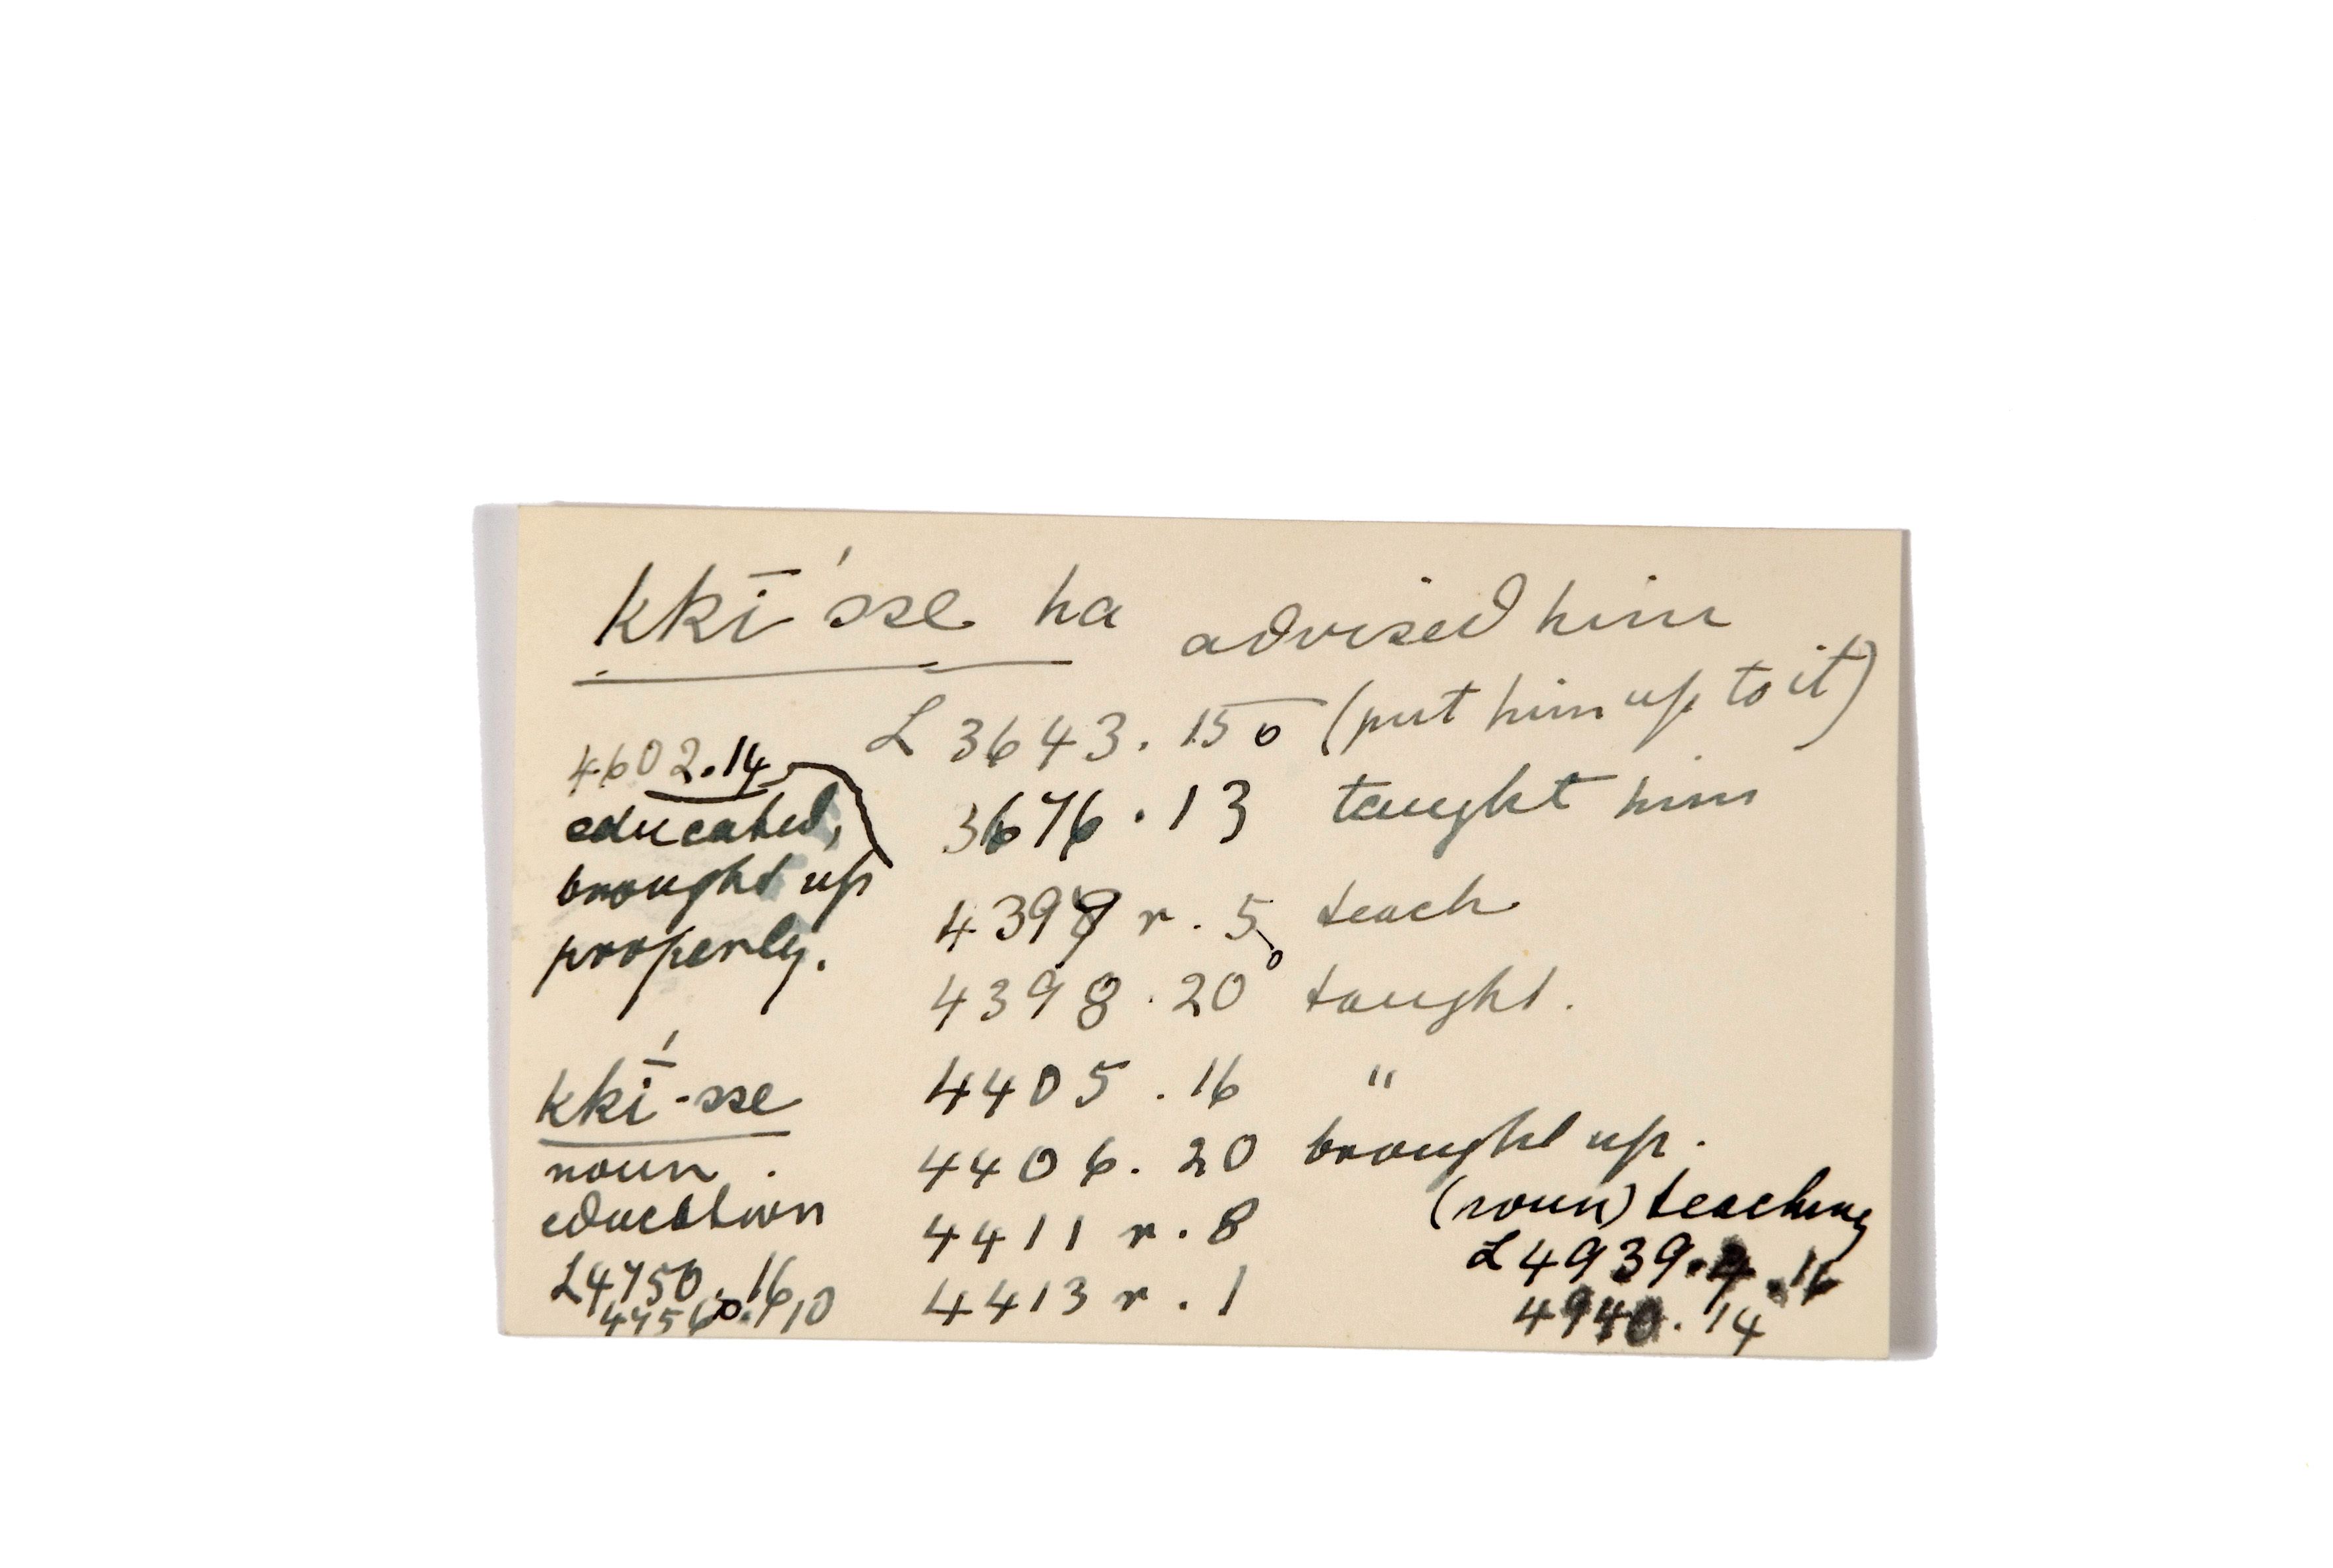 kkī́sse ha advised him
L 3643.15o (put him up to it)
3676.13 taught him
4602.14
educated,
brought up
properly.
4399 r.5 teach
4398.20o taught.
4405.16 "
4406.20 brought up.
4411 r.8
4413 r.1
kkī́-sse
noun.
education
L4750.16
(noun) teaching
L4939. .16
4940.14